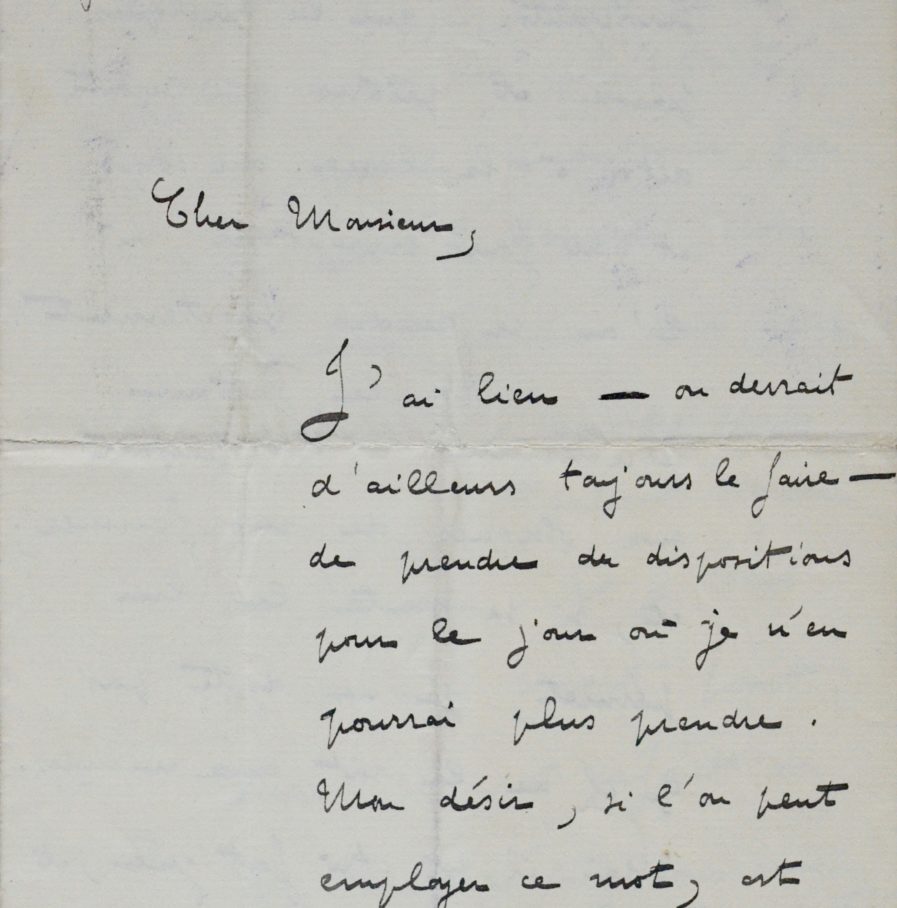 Cher Monsieur,
J'ai lieu — on devrait
d'ailleurs toujours le faire —
de prendre des dispositions
pour le jour où je n'en
pourrai plus prendre.
Mon désir, si l'on peut
employer ce mot, est